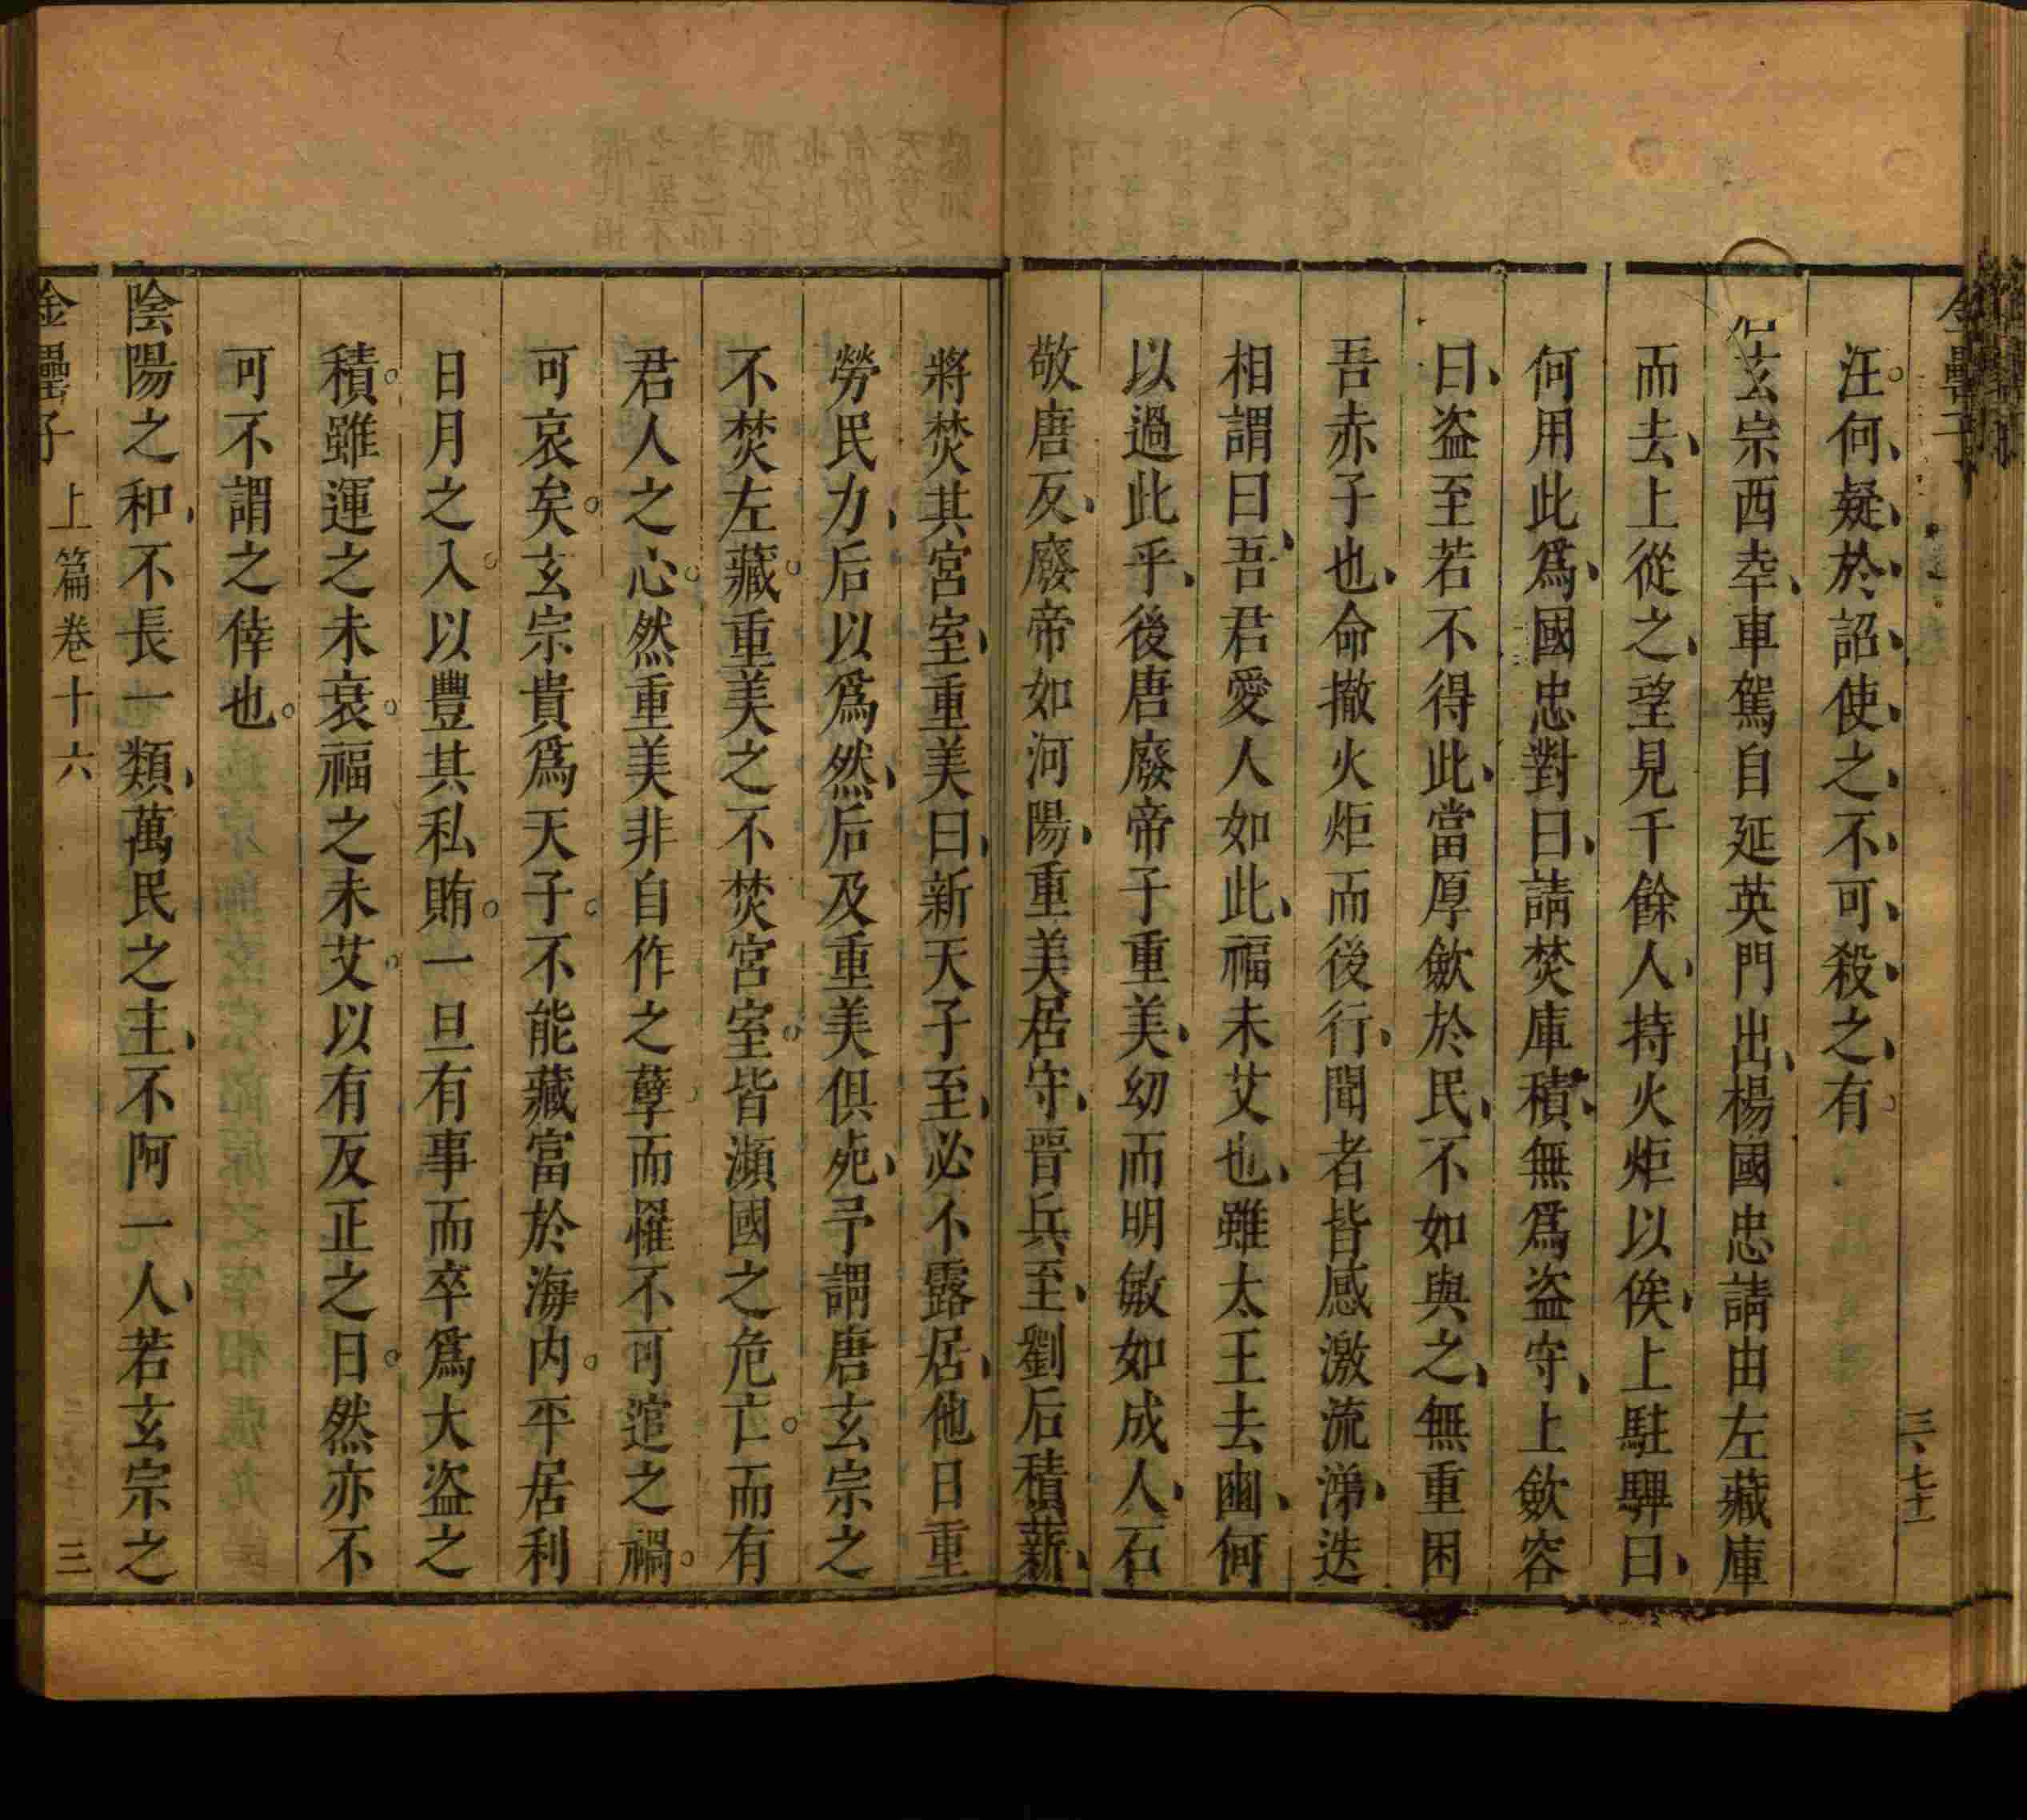 汪何疑於詔使之不可殺之有
玄宗西幸車駕自延英門出楊國忠請由左藏庫
而去上從之望見千餘人持火炬以俟上駐驆曰
何用此爲國忠對曰請焚庫積無爲盗守上斂容
曰盗至若不得此當厚斂於民不如與之無重困
吾赤子也命撤火炬而後行聞者皆感激流涕迭
相謂曰吾君愛人如此福未艾也雖太王去豳何
以過此乎後唐廢帝子重美幼而明敏如成人石
敬唐反廢帝如河陽重美居守晉兵至劉后積薪
將焚其宮室重美曰新天子至必不露居他日重
勞民力后以爲然后及重美俱死予謂唐玄宗之
不焚左藏重美之不焚宮室皆瀕國之危亡而有
君人之心然重美非自作之孽而罹不可逭之禍
可哀矣玄宗貴爲天子不能藏富於海内平居利
日月之入以豐其私賄一旦有事而卒爲大盗之
積雖運之未衰福之未艾以有反正之日然亦不
可不謂之倖也
陰陽之和不長一類萬民之主不阿一人若玄宗之
金罍子 上篇卷十六 三